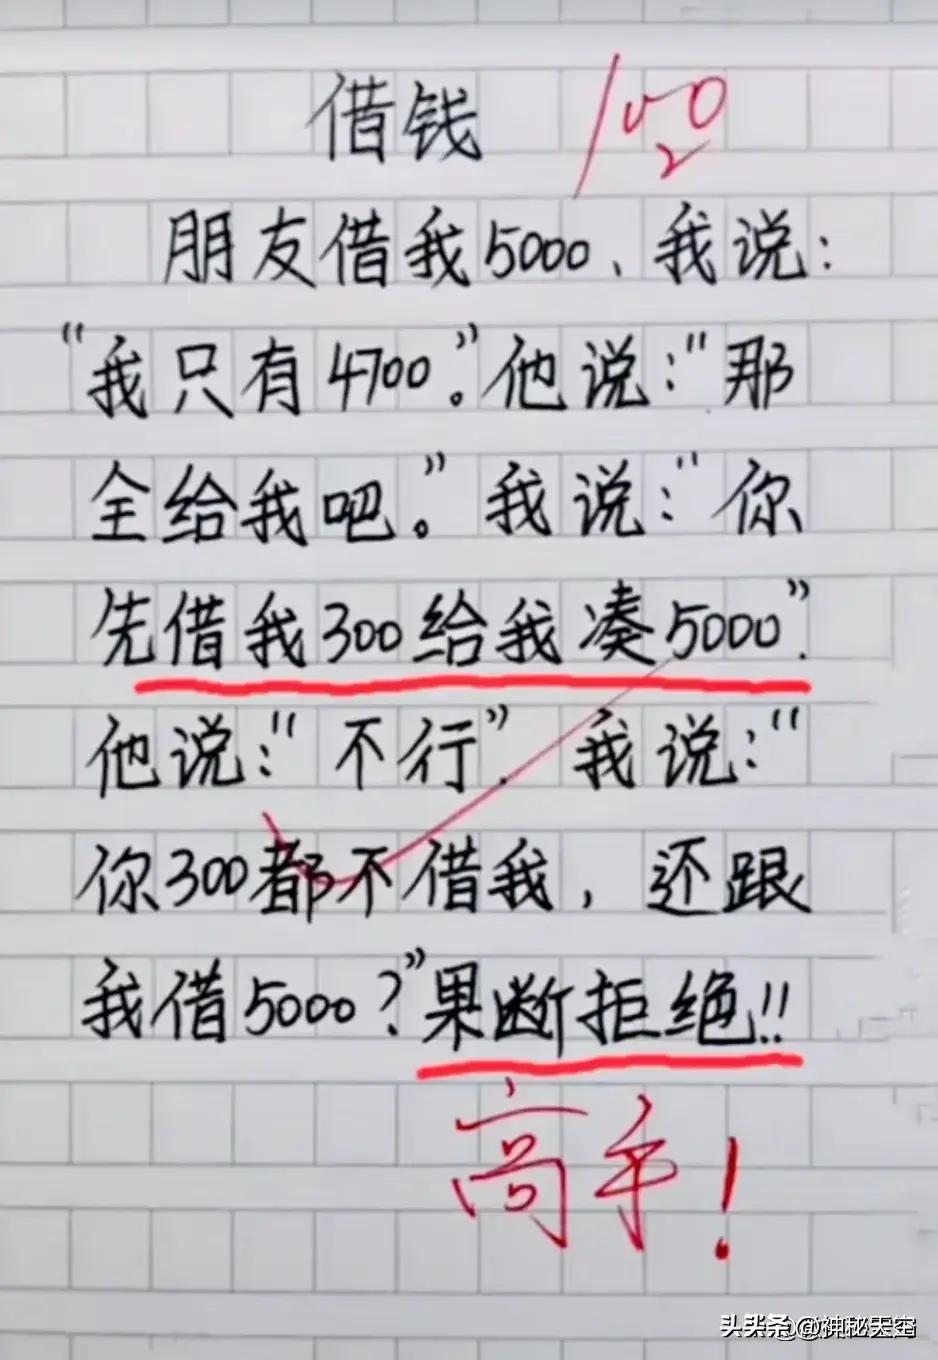 借钱 100
朋友借我5000、我说：
“我只有4700。”他说：“那
全给我吧。”我说：“你
先借我300给我凑5000”.
他说：“不行”. 我说：“
你300都不借我，还跟
我借5000？”果断拒绝!!
高手！
头条 @神秘天空